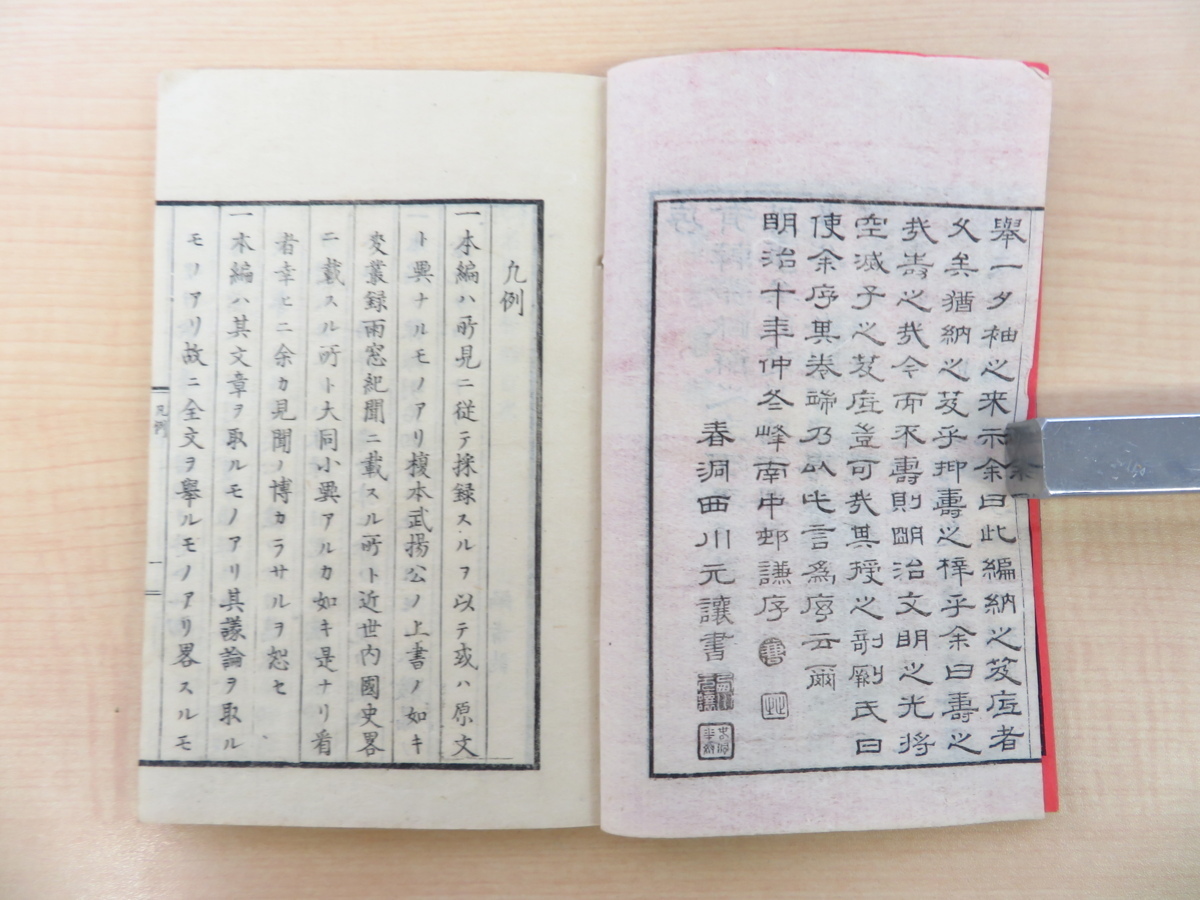 舉一夕袖之來示余曰此編納之笈底者
久矣猶納之笈乎抑壽之梓乎余曰壽之
哉壽之哉今而不壽則朙治文明之光將
空滅乎之笈底豈可哉其授之剞劂氏曰
使余序其卷端乃以此言爲序云爾
明治十年仲冬峰南中邨謙序
春洞西川元讓書
凡例
一本編ハ所見ニ從テ採録スルヲ以テ或ハ原文
ト異ナルモノアリ榎本武揚公ノ上書ノ如キ
叢録雨窓紀聞ニ載スル所ト近世内國史畧
ニ載スル所ト大同小異アルカ如キ是ナリ看
者幸ヒニ余カ見聞ノ博カラサルヲ恕セ
一本編ハ其文章ヲ取ルモノアリ其議論ヲ取ル
モノアリ故ニ全文ヲ舉ルモノアリ畧スルモ
凡例
一